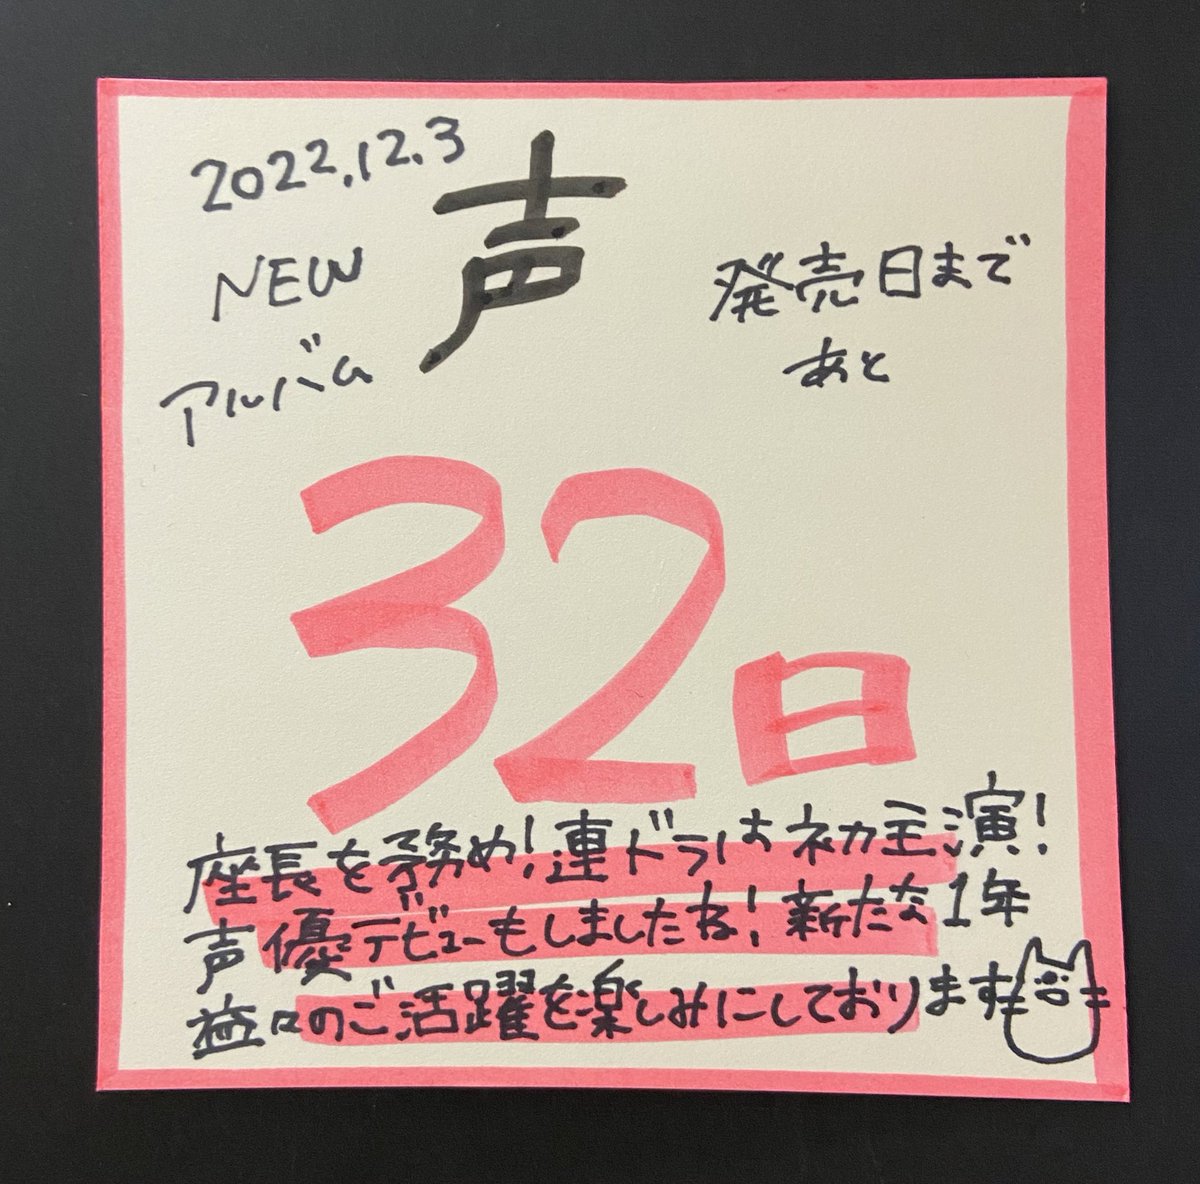 2022.12.3
NEW
アルバム
声
発売日まで
あと
32日
座長を務め!連ドラはネカ主演!
声優デビューもしましたね!新たな1年
益々のご活躍を楽しみにしております